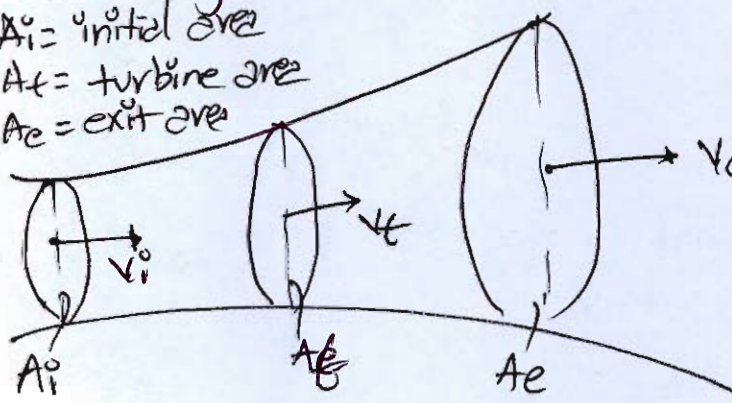 Ai = initial area
At = turbine area
Ae = exit area
Vi
Vt
Ai
At
Ae